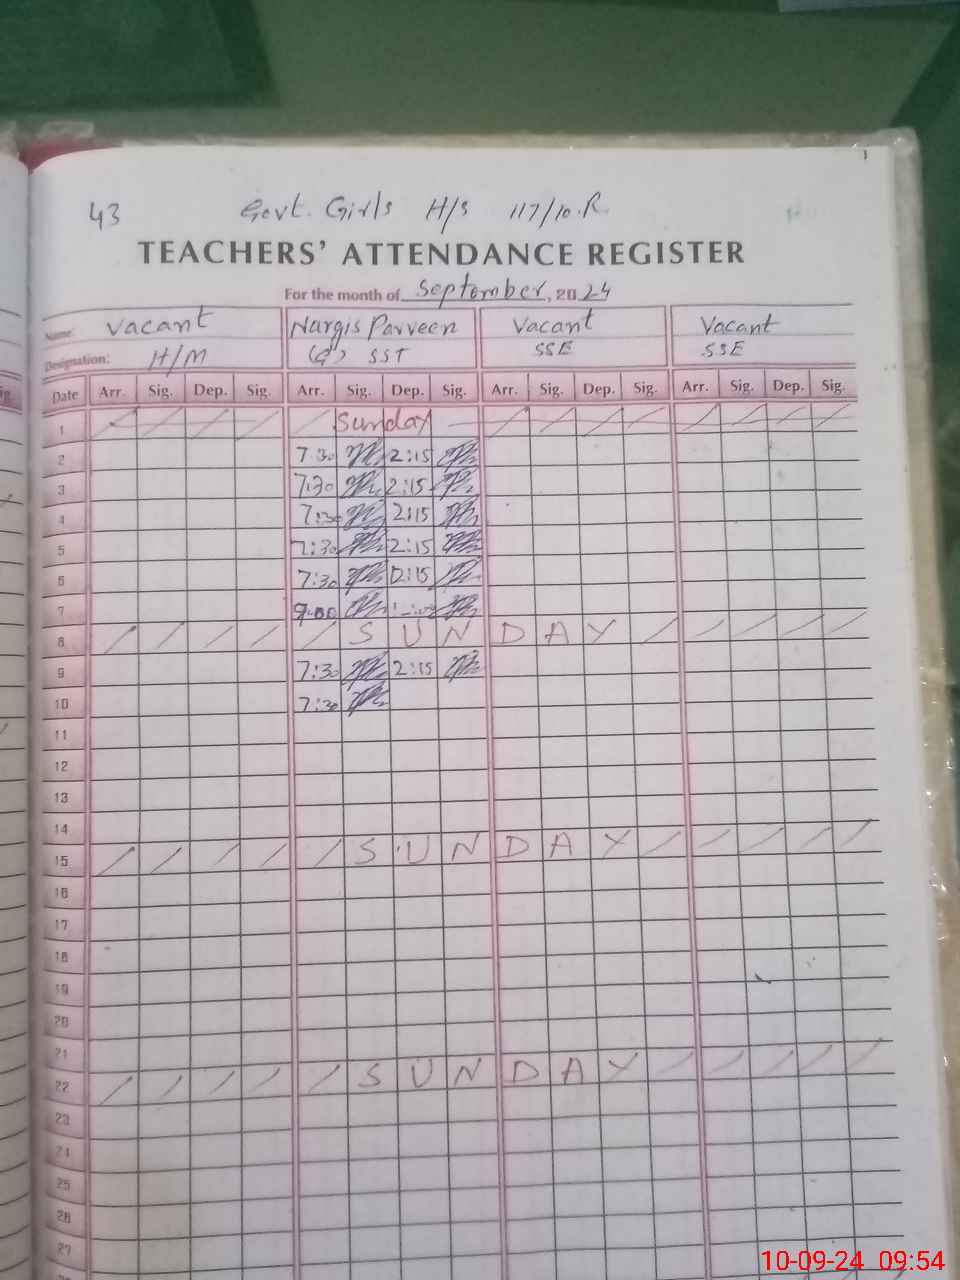 43 Govt. Girls H/S 117/10.R
TEACHERS' ATTENDANCE REGISTER
For the month of September, 2024
Name: Vacant Nargis Parveen Vacant Vacant
Designation: H/M SST SSE SSE
Date Arr. Sig. Dep. Sig. Arr. Sig. Dep. Sig. Arr. Sig. Dep. Sig. Arr. Sig. Dep. Sig.
1 Sunday
2 7:30 2:15
3 7:30 2:15
4 7:30 2:15
5 7:30 2:15
6 7:30 2:15
7 9:00
8 SUNDAY
9 7:30 2:15
10 7:30
11
12
13
14
15 SUNDAY
16
17
18
19
20
21
22 SUNDAY
23
24
25
26
27
10-09-24 09:54